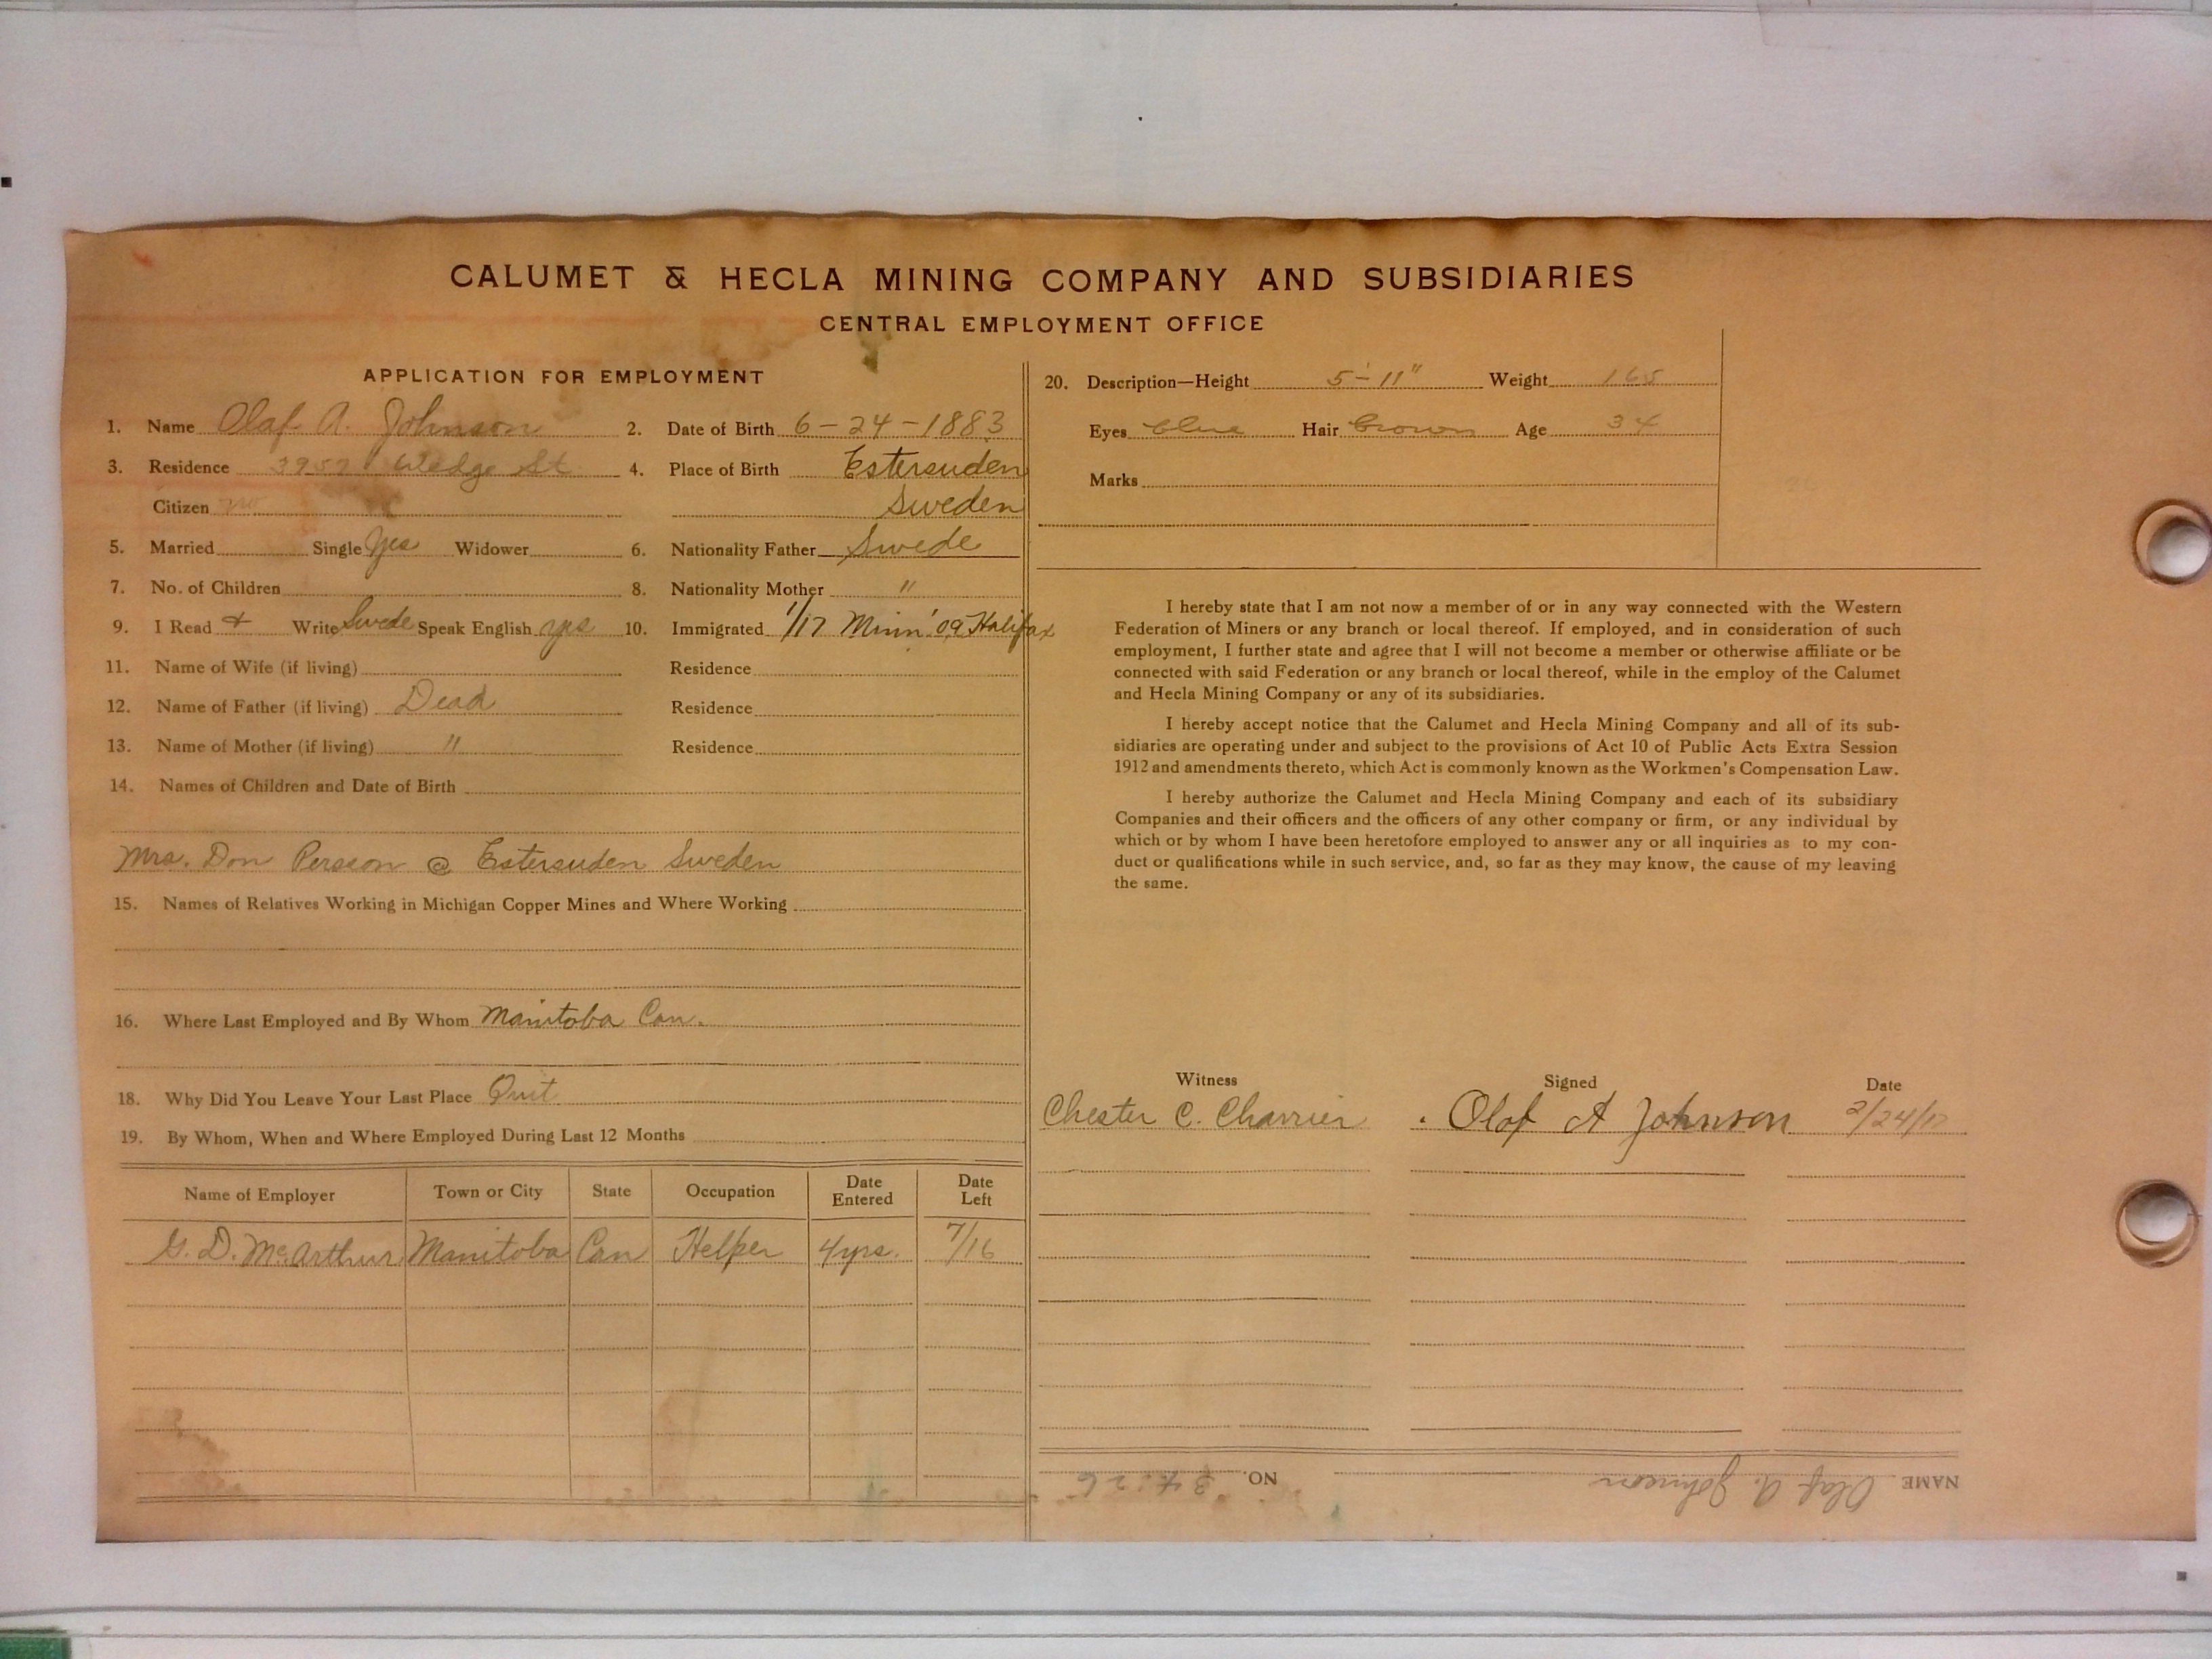 CALUMET & HECLA MINING COMPANY AND SUBSIDIARIES
CENTRAL EMPLOYMENT OFFICE
APPLICATION FOR EMPLOYMENT
1. Name Olaf A. Johnson 2. Date of Birth 6-24-1883
3. Residence Wedge St 4. Place of Birth Estersuden
Citizen no Sweden
5. Married Single Yes Widower 6. Nationality Father Swede
7. No. of Children 8. Nationality Mother "
9. I Read + Write Swede Speak English yes 10. Immigrated 1/17 Minn '09 Halifax
11. Name of Wife (if living) Residence
12. Name of Father (if living) Dead Residence
13. Name of Mother (if living) " Residence
14. Names of Children and Date of Birth
Mrs. Don Persson @ Estersuden Sweden
15. Names of Relatives Working in Michigan Copper Mines and Where Working
16. Where Last Employed and By Whom Manitoba Can.
18. Why Did You Leave Your Last Place Quit
19. By Whom, When and Where Employed During Last 12 Months
Name of Employer Town or City State Occupation Date Entered Date Left
G. D. McArthur Manitoba Can Helper 4yrs. 7/16
20. Description—Height 5'-11" Weight 165
Eyes blue Hair brown Age 34
Marks
I hereby state that I am not now a member of or in any way connected with the Western
Federation of Miners or any branch or local thereof. If employed, and in consideration of such
employment, I further state and agree that I will not become a member or otherwise affiliate or be
connected with said Federation or any branch or local thereof, while in the employ of the Calumet
and Hecla Mining Company or any of its subsidiaries.
I hereby accept notice that the Calumet and Hecla Mining Company and all of its sub-
sidiaries are operating under and subject to the provisions of Act 10 of Public Acts Extra Session
1912 and amendments thereto, which Act is commonly known as the Workmen's Compensation Law.
I hereby authorize the Calumet and Hecla Mining Company and each of its subsidiary
Companies and their officers and the officers of any other company or firm, or any individual by
which or by whom I have been heretofore employed to answer any or all inquiries as to my con-
duct or qualifications while in such service, and, so far as they may know, the cause of my leaving
the same.
Witness Signed Date
Chester C. Charrier Olaf A Johnson 2/24/17
NAME Olaf A. Johnson NO.